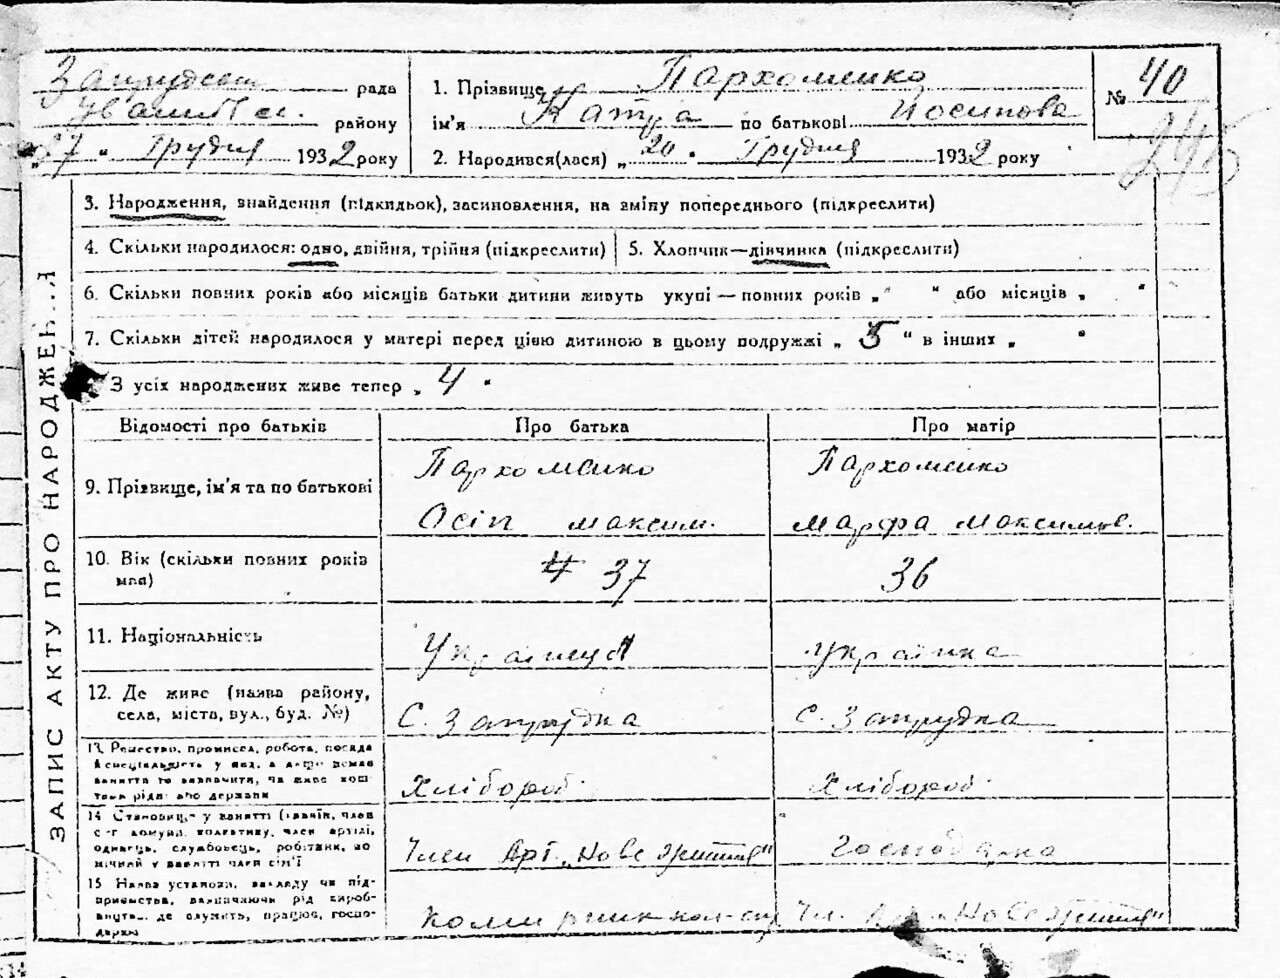 рада
району
„27“ Грудня 1932 року
1. Прізвище Пархоменко
ім'я Катра по батькові Йосипова
2. Народився(лася) „20“ Грудня 1932 року
№ 40
245
ЗАПИС АКТУ ПРО НАРОДЖЕН...Я
3. Народження, знайдення (підкидьок), засиновлення, на зміну попереднього (підкреслити)
4. Скільки народилося: одно, двійня, трійня (підкреслити)
5. Хлопчик—дівчинка (підкреслити)
6. Скільки повних років або місяців батьки дитини живуть укупі — повних років „ “ або місяців „ “
7. Скільки дітей народилося у матері перед цією дитиною в цьому подружжі „5“ в інших „ “
З усіх народжених живе тепер „4“
Відомості про батьків
Про батька
Про матір
9. Прізвище, ім'я та по батькові
Пархоменко
Осіп максим.
Пархоменко
марфа максимов.
10. Вік (скільки повних років
має)
37
36
11. Національність
Українець
Українка
12. Де живе (назва району,
села, міста, вул., буд. №)
С. Запрудка
С. Запрудка
13. Ремество, промисел, робота, посада
й спеціальність у якд, а якщо немає
заняття то зазначити, чи живе кош-
том рідні або держави
Хлібороб
Хлібороб
14 Становище у занятті (хазяїн, член
с-г комуни, колективу, член артілі,
одинець, службовець, робітник, до
мічний у занятті член сім'ї
Член Арт. „Нове життя“
Господарка
15 Назва установи, закладу чи під-
приємства, зазначаючи рід вироб-
ництв.. де служить, працює, госпо-
дарює
Чл. Арт. „Нове життя“